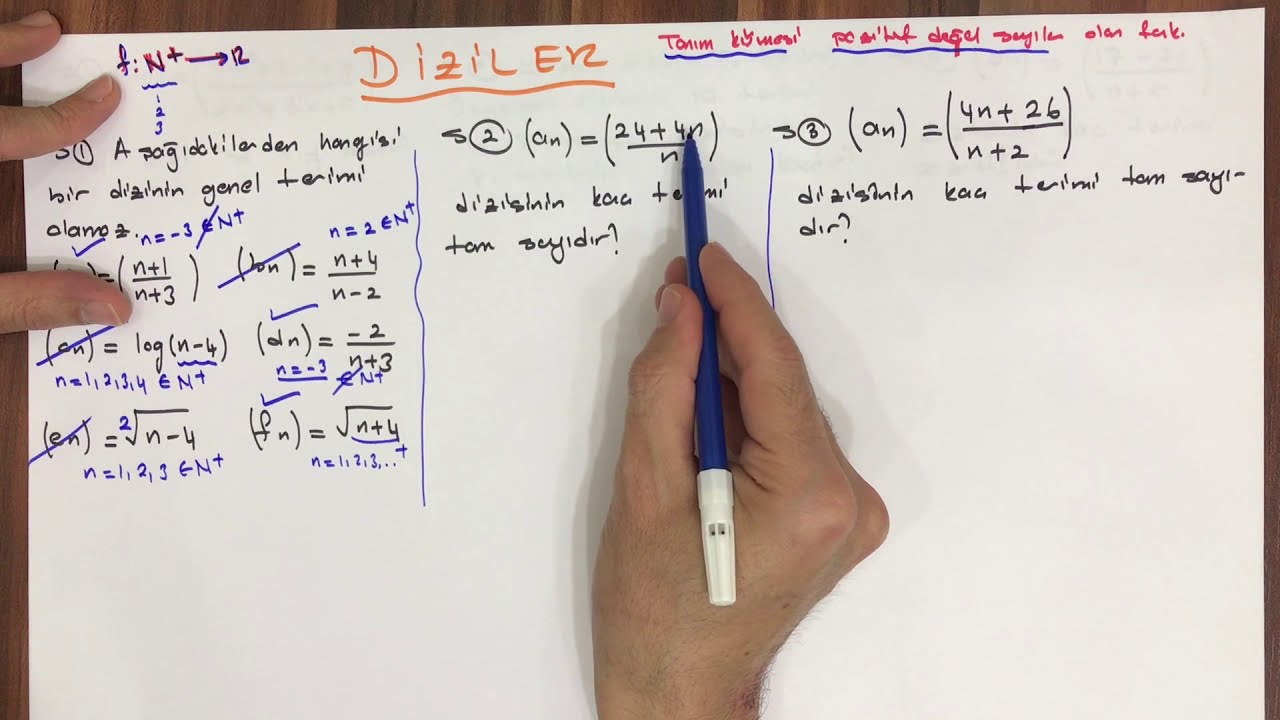 f: N⁺ → R
1
2
3
DİZİLER
Tanım kümesi pozitif doğal sayılar olan fonk.
S① Aşağıdakilerden hangisi
bir dizinin genel terimi
olamaz.
n=-3 ∉ N⁺
n=2 ∈ N⁺
= (n+1 / n+3)
(bn) = n+4 / n-2
(cn) = log(n-4)
n=1,2,3,4 ∈ N⁺
(dn) = -2 / n+3
n=-3 ∉ N⁺
(en) = ²√n-4
n=1,2,3 ∈ N⁺
(fn) = √n+4
n=1,2,3,..⁺
S② (an) = (24+4n / n)
dizisinin kaç terimi
tam sayıdır?
S③ (an) = (4n+26 / n+2)
dizisinin kaç terimi tam sayı-
dır?